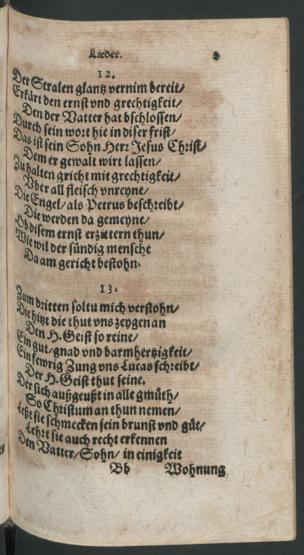 Lieder.
12.
Der Stralen glantz vernim bereit/
Erkärt den ernst vnd grechtigkeit/
Den der Vatter hat bschlossen/
Durch sein wort hie in diser frist/
Das ist sein Sohn Herr Jesus Christ/
Dem er gewalt wirt lassen/
Zu halten gricht mit grechtigkeit/
Vber all fleisch vnreyne/
Die Engel/ als Petrus beschreibt/
Die werden da gemeyne/
Ob disem ernst erzittern thun/
Wie wil der sündig mensche
Da am gericht bestohn.
13.
Zum dritten soltu mich verstohn/
Die hitz die thut vns zeygen an
Den H. Geist so reine/
Ein gut/ gnad vnd barmhertzigkeit/
Ein fewrig Zung vns Lucas schreibt/
Der H. Geist thut seine.
Der sich außgeußt in alle gmüth/
So Christum an thun nemen/
Leßt sie schmecken sein brunst vnd güt/
Lehrt sie auch recht erkennen
Den Vatter/ Sohn/ in einigkeit
Bb Wohnung